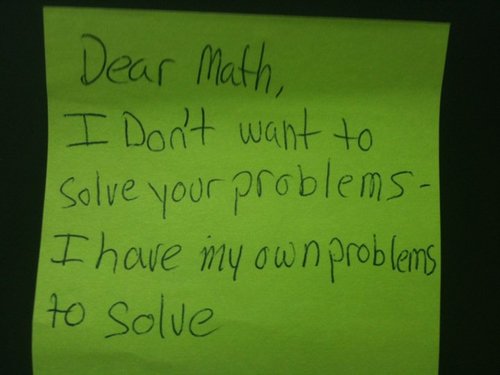 Dear Math,
I Don't want to
solve your problems-
I have my own problems
to solve